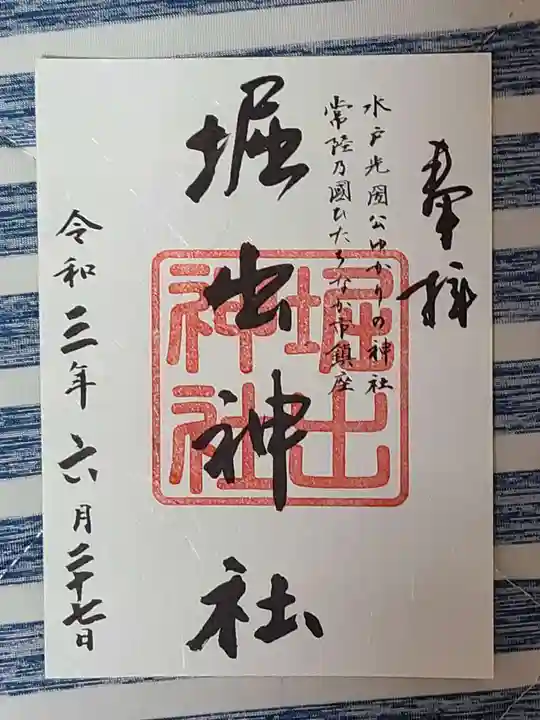 奉拝
水戸光圀公ゆかりの神社
常陸乃國ひたちなか市鎮座
堀出神社
堀出
神社
令和三年六月二十七日